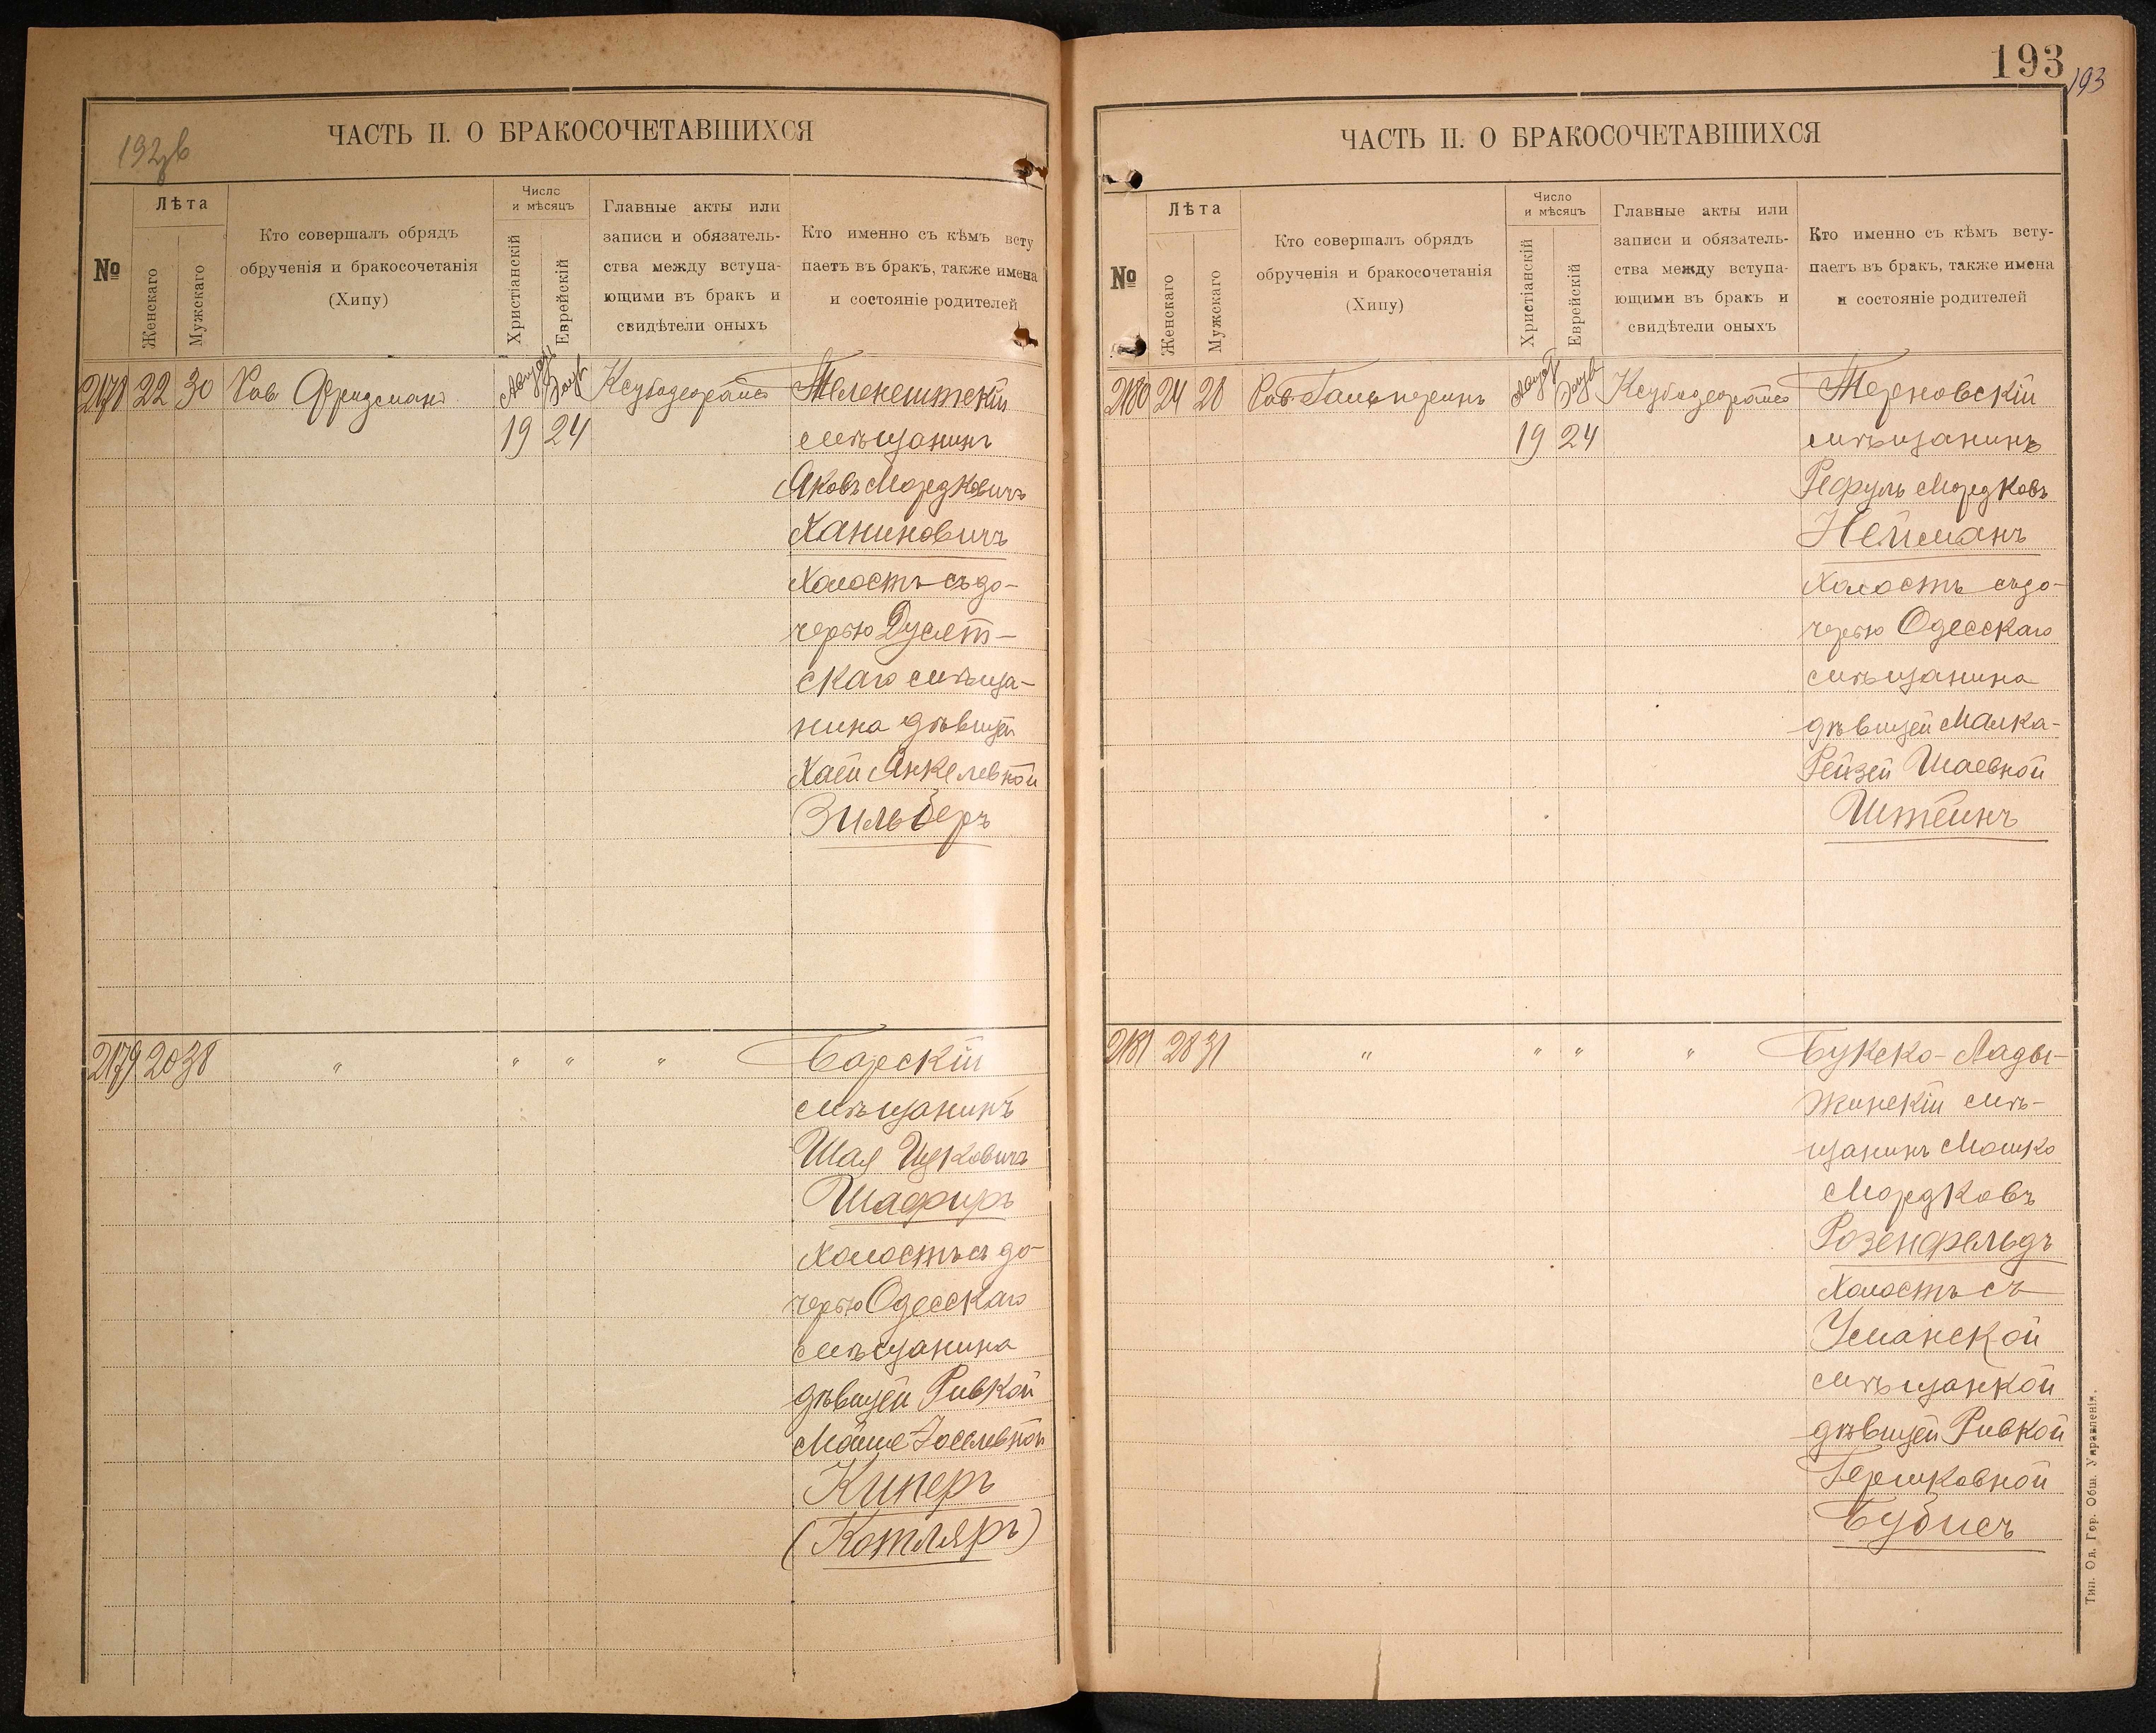 192об
ЧАСТЬ II. О БРАКОСОЧЕТАВШИХСЯ
№
Лѣта
Женскаго
Мужскаго
Кто совершалъ обрядъ
обрученія и бракосочетанія
(Хипу)
Число
и мѣсяцъ
Христіанскій
Еврейскій
Главные акты или
записи и обязатель-
ства между вступа-
ющими въ бракъ и
свидѣтели оныхъ
Кто именно съ кѣмъ всту
паетъ въ бракъ, также имена
и состояніе родителей
2178 22 30 Рав. Фридманъ Теленештскій
19 24 мѣщанинъ
Яковъ Мордковичъ
Ханиновичъ
холостъ съ до-
черью Дусят-
скаго мѣща-
нина дѣвицей
Хаей Янкелевной
Зильберъ
2179 20 38 " " " " Барскій
мѣщанинъ
Шая Ицковичъ
Шафиръ
холостъ съ до-
черью Одесскаго
мѣщанина
дѣвицей Ривкой
Іоселевной
Киперъ
(Котляръ)
193
193
ЧАСТЬ II. О БРАКОСОЧЕТАВШИХСЯ
№
Лѣта
Женскаго
Мужскаго
Кто совершалъ обрядъ
обрученія и бракосочетанія
(Хипу)
Число
и мѣсяцъ
Христіанскій
Еврейскій
Главные акты или
записи и обязатель-
ства между вступа-
ющими въ бракъ и
свидѣтели оныхъ
Кто именно съ кѣмъ всту-
паетъ въ бракъ, также имена
и состояніе родителей
2180 24 28 Рав. Гальперинъ Терновскій
19 24 мѣщанинъ
Рефуль Мордковъ
Нейманъ
холостъ съ до-
черью Одесскаго
мѣщанина
дѣвицей Малка-
Рейзей Шаевной
Штейнъ
2181 28 31 " " " " Букско-Лады-
жинскій мѣ-
щанинъ Мошко
Мордковъ
Розенфельдъ
холостъ съ
Уманской
мѣщанкой
дѣвицей Ривкой
Гершковной
Бубисъ
Тип. Од. Гор. Общ. Управленія.